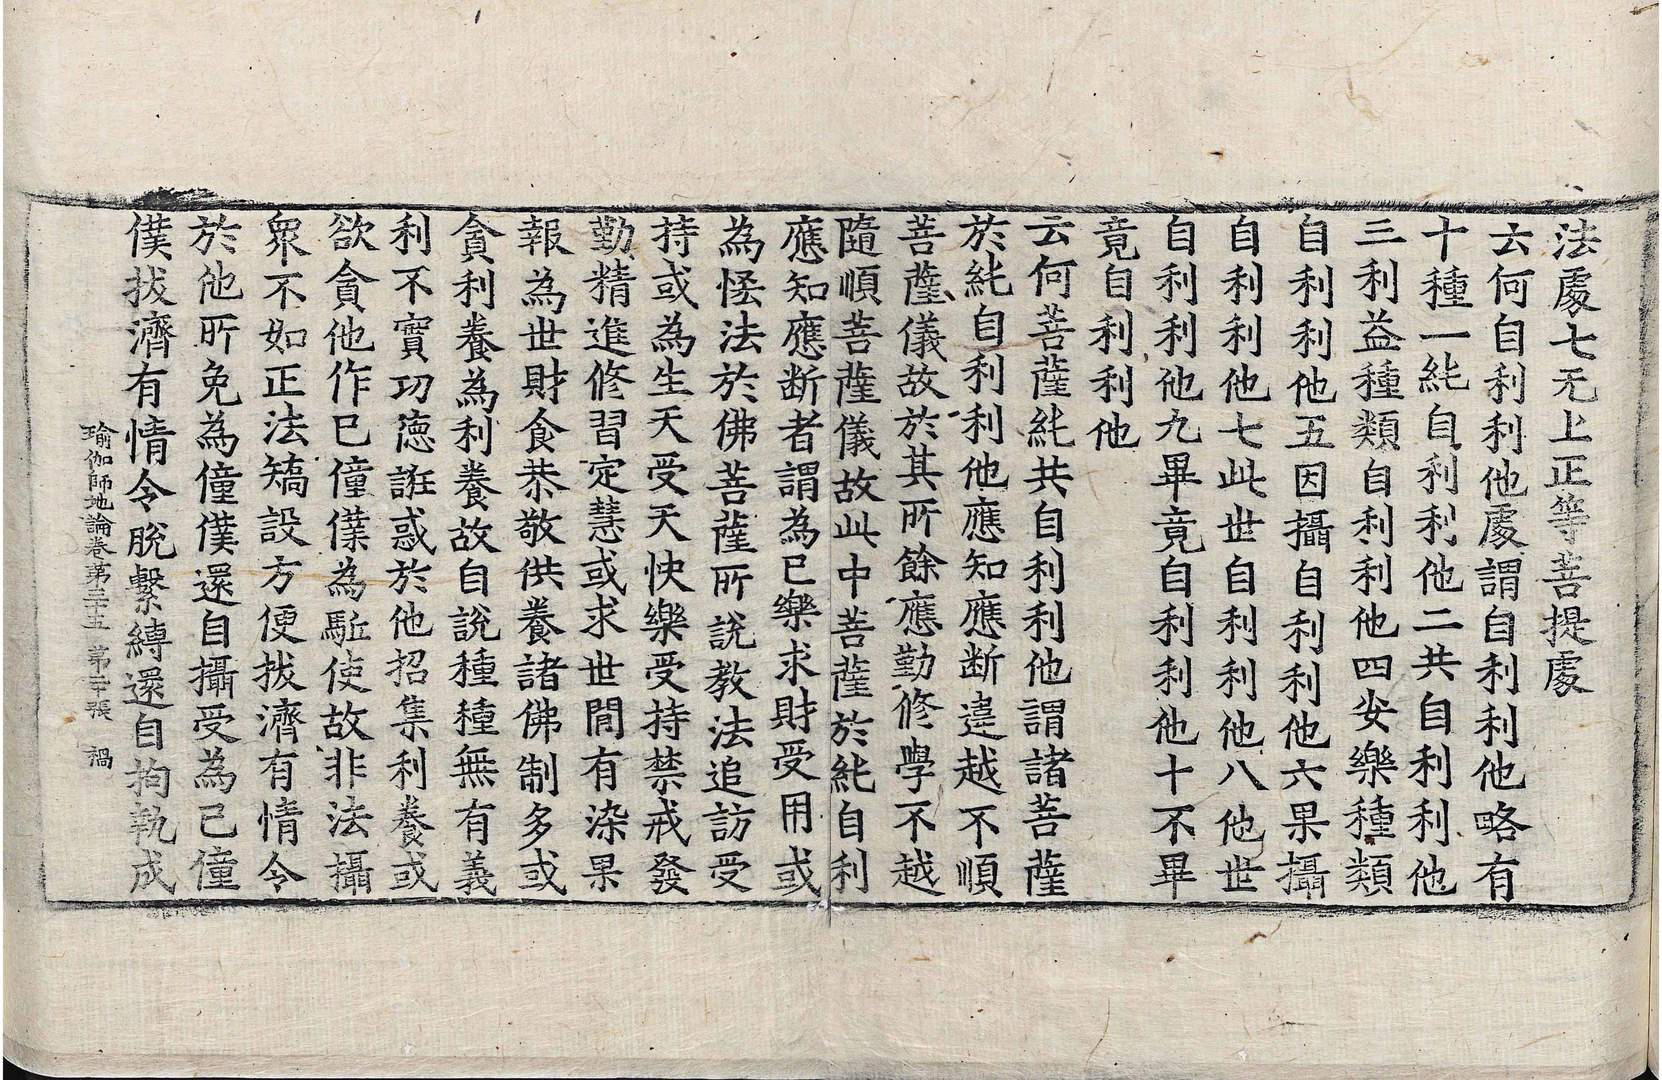 法處七无上正等菩提處
云何自利利他處謂自利利他略有
十種一純自利利他二共自利利他
三利益種類自利利他四安樂種類
自利利他五因攝自利利他六果攝
自利利他七此世自利利他八他世
自利利他九畢竟自利利他十不畢
竟自利利他
云何菩薩純共自利利他謂諸菩薩
於純自利利他應知應断違越不順
菩薩儀故於其所餘應勤修學不越
隨順菩薩儀故此中菩薩於純自利
應知應断者謂為己樂求財受用或
為悋法於佛菩薩所說教法追訪受
持或為生天受天快樂受持禁戒發
勤精進修習定慧或求世間有染果
報為世財食恭敬供養諸佛制多或
貪利養為利養故自說種種無有義
利不實功德誑惑於他招集利養或
欲貪他作已僮僕為駈使故非法攝
衆不如正法矯設方便拔濟有情令
於他所免為僮僕還自攝受為己僮
僕拔濟有情令脫繫縛還自拘執成
瑜伽師地論卷第三十五 第二十張 禍